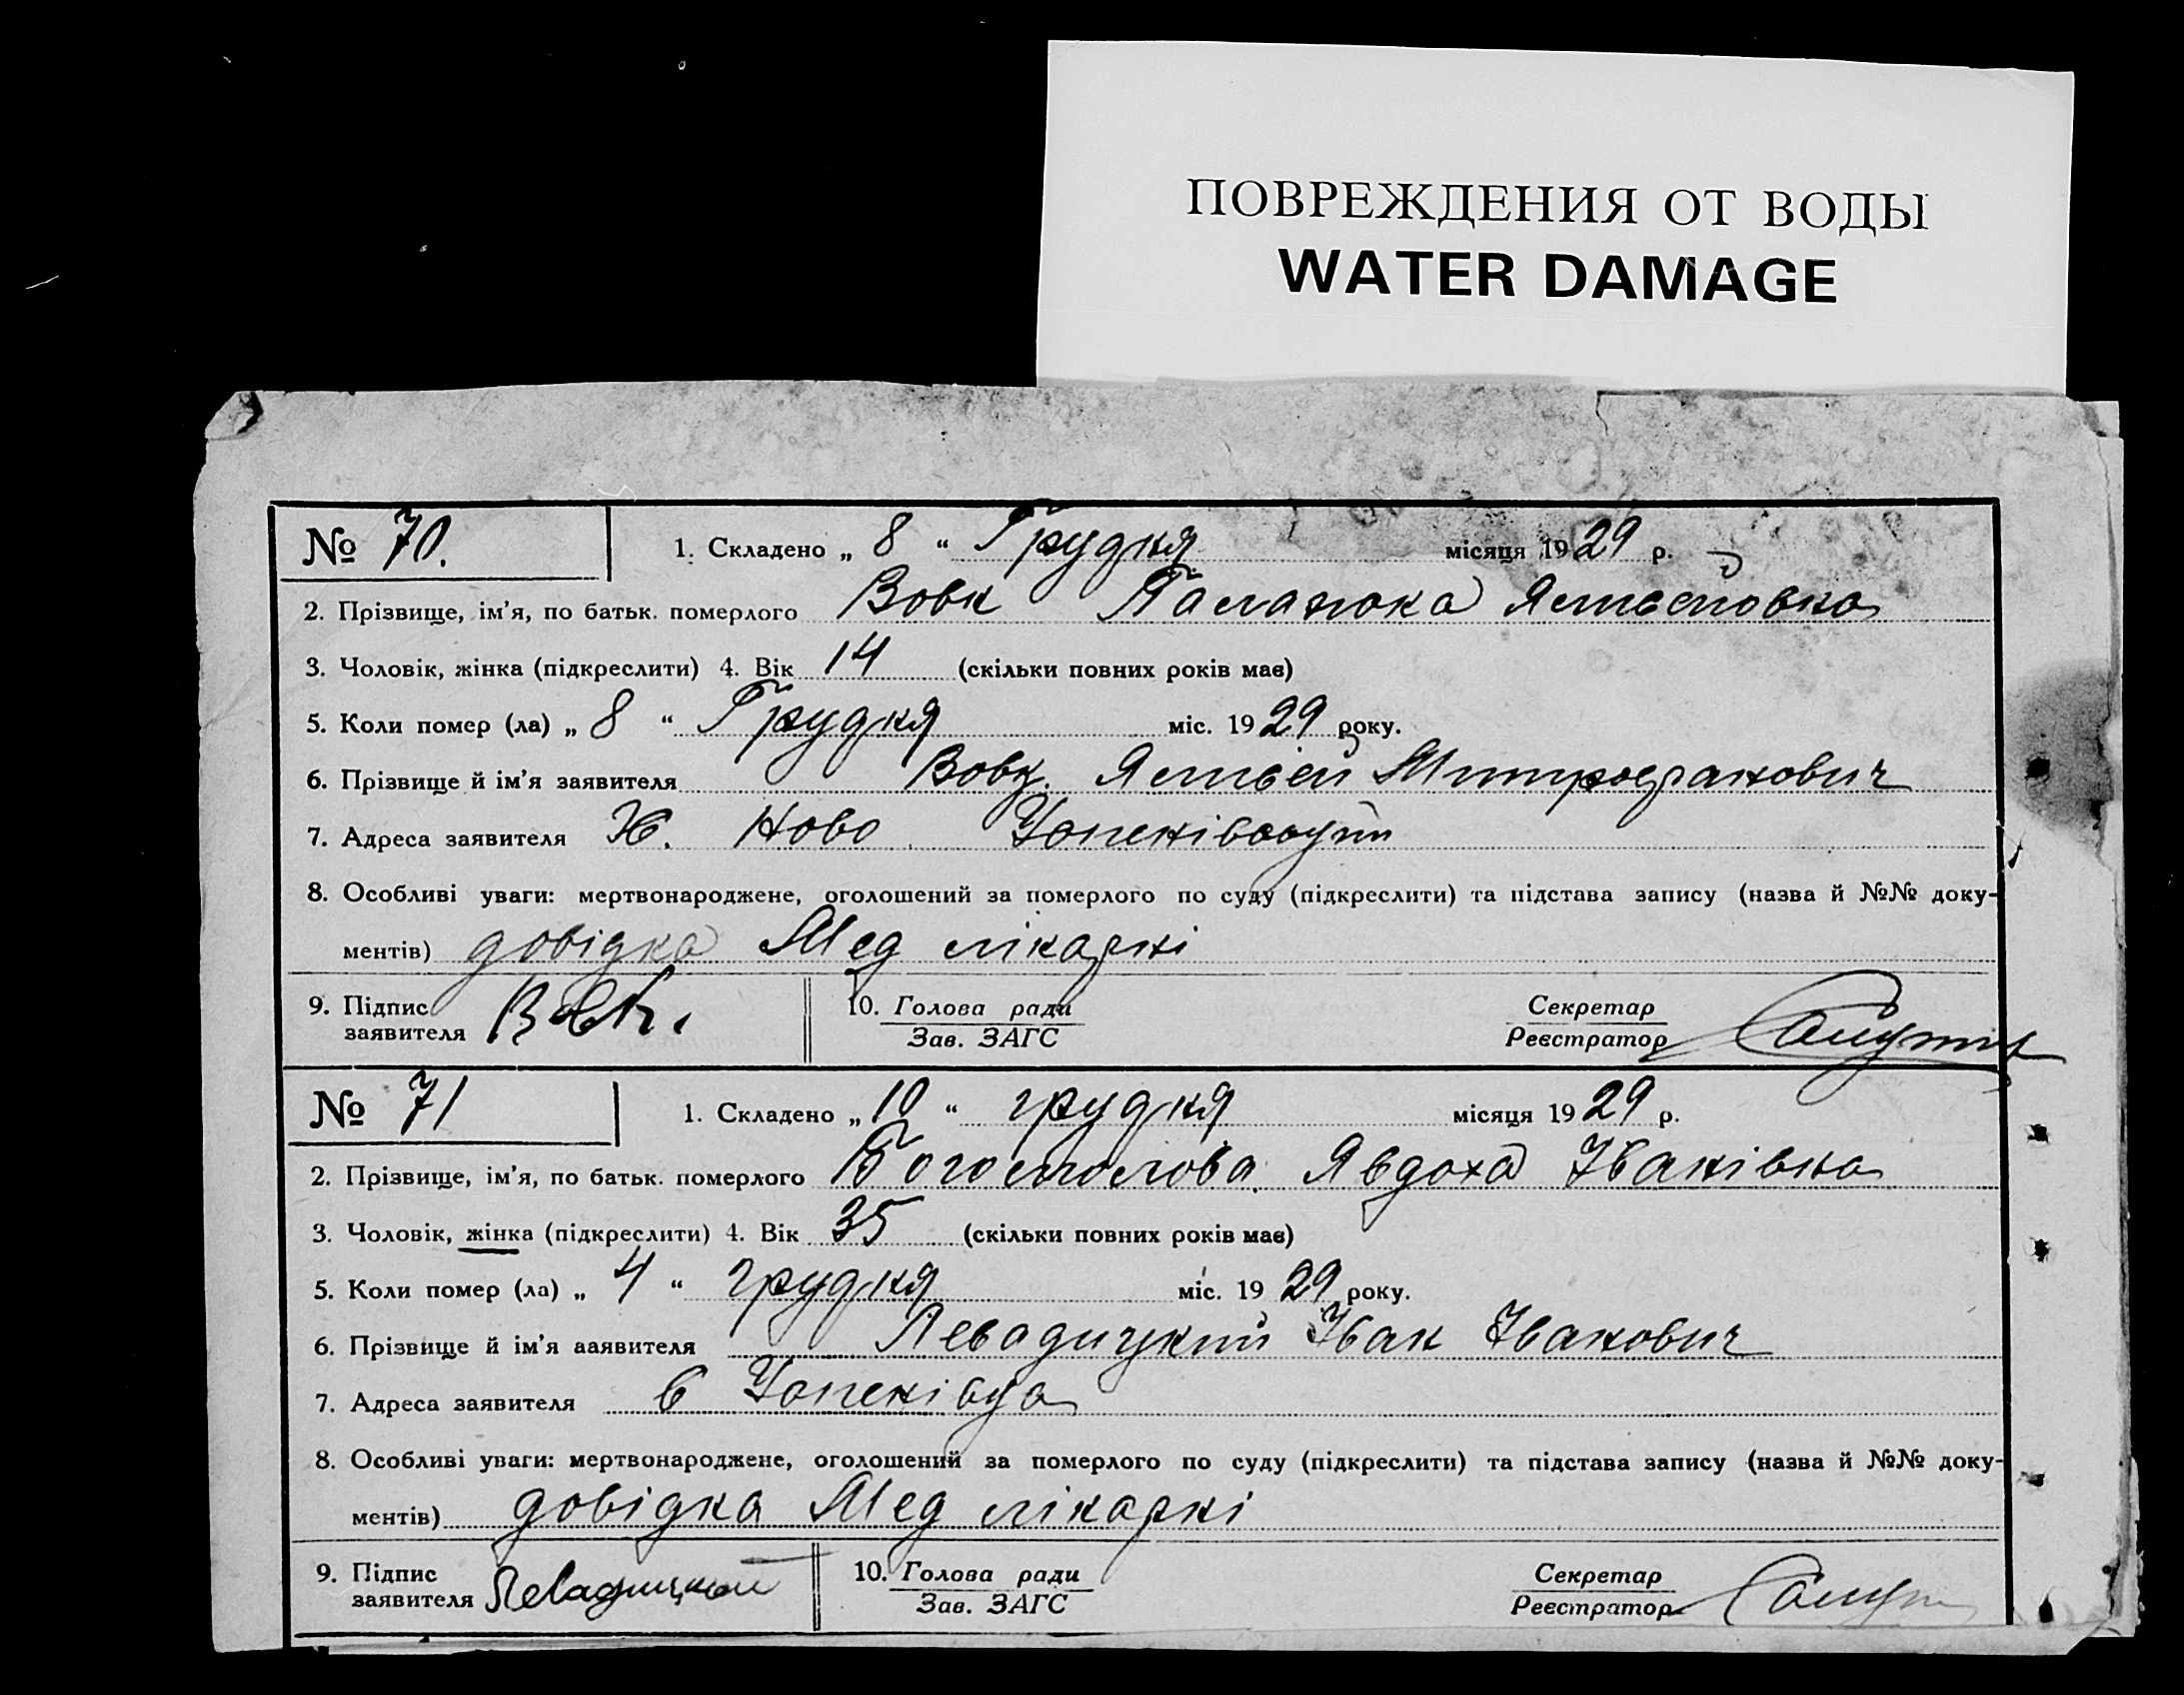 ПОВРЕЖДЕНИЯ ОТ ВОДЫ
WATER DAMAGE
№ 70. 1. Складено „ 8 “ Грудня місяця 1929 р.
2. Прізвище, ім'я, по батьк. померлого Вовк
3. Чоловік, жінка (підкреслити) 4. Вік 14 (скільки повних років має)
5. Коли помер (ла) „ 8 “ Грудня міс. 1929 року.
6. Прізвище й ім'я заявителя Вовк. Митрофанович
7. Адреса заявителя Х. Ново
8. Особливі уваги: мертвонароджене, оголошений за померлого по суду (підкреслити) та підстава запису (назва й №№ доку-
ментів) довідка Мед лікарні
9. Підпис заявителя Вовк. 10. Голова ради Секретар
Зав. ЗАГС Реєстратор
№ 71 1. Складено „ 10 “ грудня місяця 1929 р.
2. Прізвище, ім'я, по батьк. померлого Явдоха Іванівна
3. Чоловік, жінка (підкреслити) 4. Вік 35 (скільки повних років має)
5. Коли помер (ла) „ 4 “ грудня міс. 1929 року.
6. Прізвище й ім'я ааявителя Левадицкий Іван Іванович
7. Адреса заявителя
8. Особливі уваги: мертвонароджене, оголошений за померлого по суду (підкреслити) та підстава запису (назва й №№ доку-
ментів) довідка Мед лікарні
9. Підпис заявителя Левадицкий 10. Голова ради Секретар
Зав. ЗАГС Реєстратор